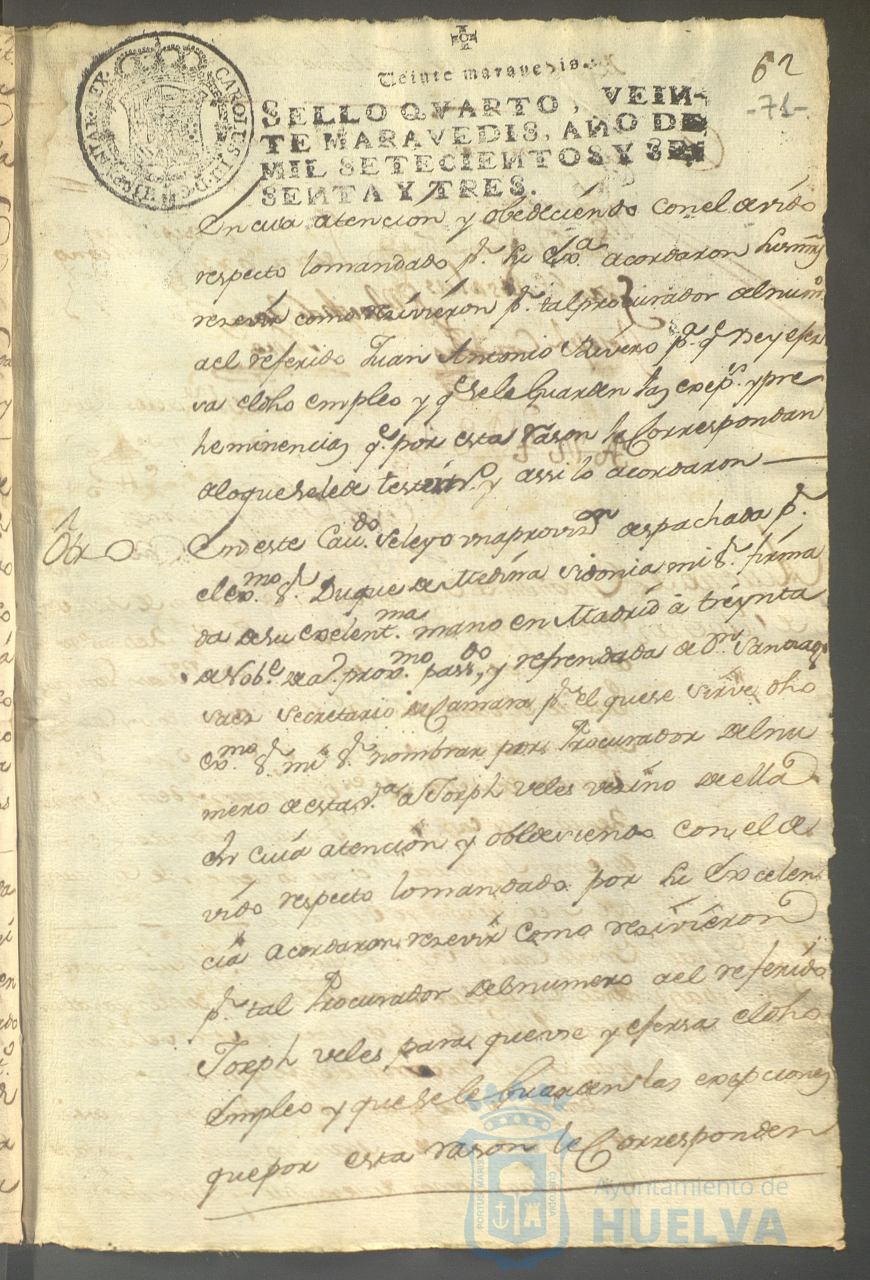 Veinte maravedis.
62
-71-
SELLO QVARTO, VEIN-
TE MARAVEDIS, AÑO DE
MIL SETECIENTOS Y SE-
SENTA Y TRES.
CAROLUS III D G HISPANIAR
En cuia atencion y obedeciendo con el devido
respecto lo mandado pr. su Exa. acordaron
resevir como resivieron pr. tal procurador del numo.
a el referido Juan Antonio Rivero pa. qe. use y eser
va el dho empleo y qe. se le Guarden las exceps. y pre
heminencias qe. por esta rason le Correspondan
a lo que se le de testimo. y assi lo acordaron
Otra
En este Cavdo. se leyo una provin. despachada pr.
el exmo. Sr. Duque de Medina Sidonia mi Sr. firma
da de su excelentma. mano en Madrid á treynta
de Nobe. de a. proxmo. passdo, y refrendada de Dn. Santiago
Saes Secretario de Camara pr. el que se sirve dho
exmo. Sr. mi Sr. nombrar por Procurador del nu
mero de esta va. a Joseph Veles vesino de ella
En cuia atencion y obedeciendo con el de
vido respecto lo mandado por su Excelen
cia acordaron resevir como resivieron
pr. tal Procurador del numero a el referido
Joseph Veles para que use y esersa el dho
Empleo y que se le Guarden las excepciones
que por esta rason le Corresponden
PORTUS MARIS ET TERRAE CUSTODIA
Ayuntamiento de
HUELVA